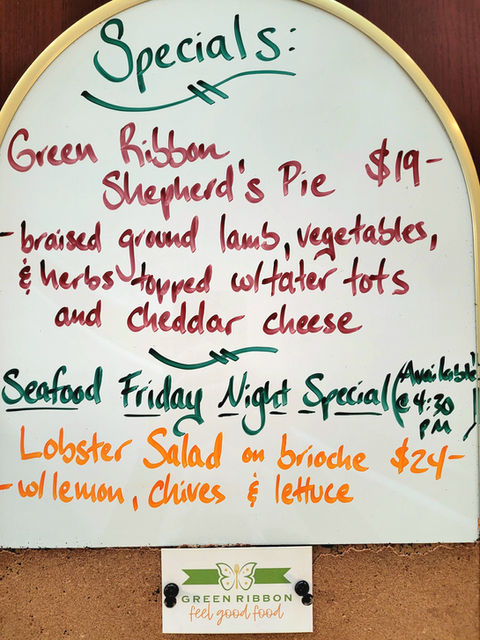 Specials:
Green Ribbon
Shepherd's Pie $19-
- braised ground lamb, vegetables,
& herbs topped w/tater tots
and cheddar cheese
Seafood Friday Night Special (Available @ 4:30 PM)
Lobster Salad on brioche $24-
- w/ lemon, chives & lettuce
GREEN RIBBON
feel good food